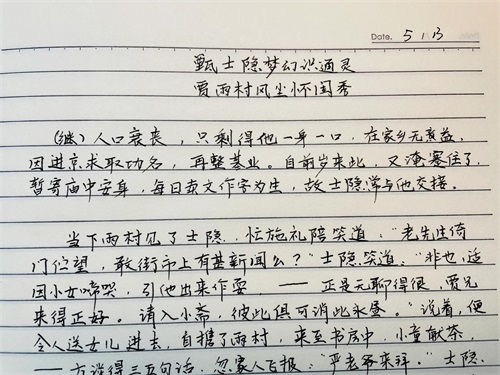 Date. 5 1 13
甄士隐梦幻识通灵
贾雨村风尘怀闺秀
(继) 人口衰丧，只剩得他一身一口，在家乡无益，
因进京求取功名，再整基业。自前岁来此，又淹蹇住了，
暂寄庙中安身，每日卖文作字为生，故士隐常与他交接。
当下雨村见了士隐，忙施礼陪笑道："老先生倚
门伫望，敢街市上有甚新闻么？"士隐笑道："非也，适
因小女啼哭，引他出来作耍 —— 正是无聊得很，贾兄
来得正好。请入小斋，彼此俱可消此永昼。"说着，便
令人送女儿进去，自携了雨村，来至书房中，小童献茶。
—— 方谈得三五句话，忽家人飞报："严老爷来拜。"士隐